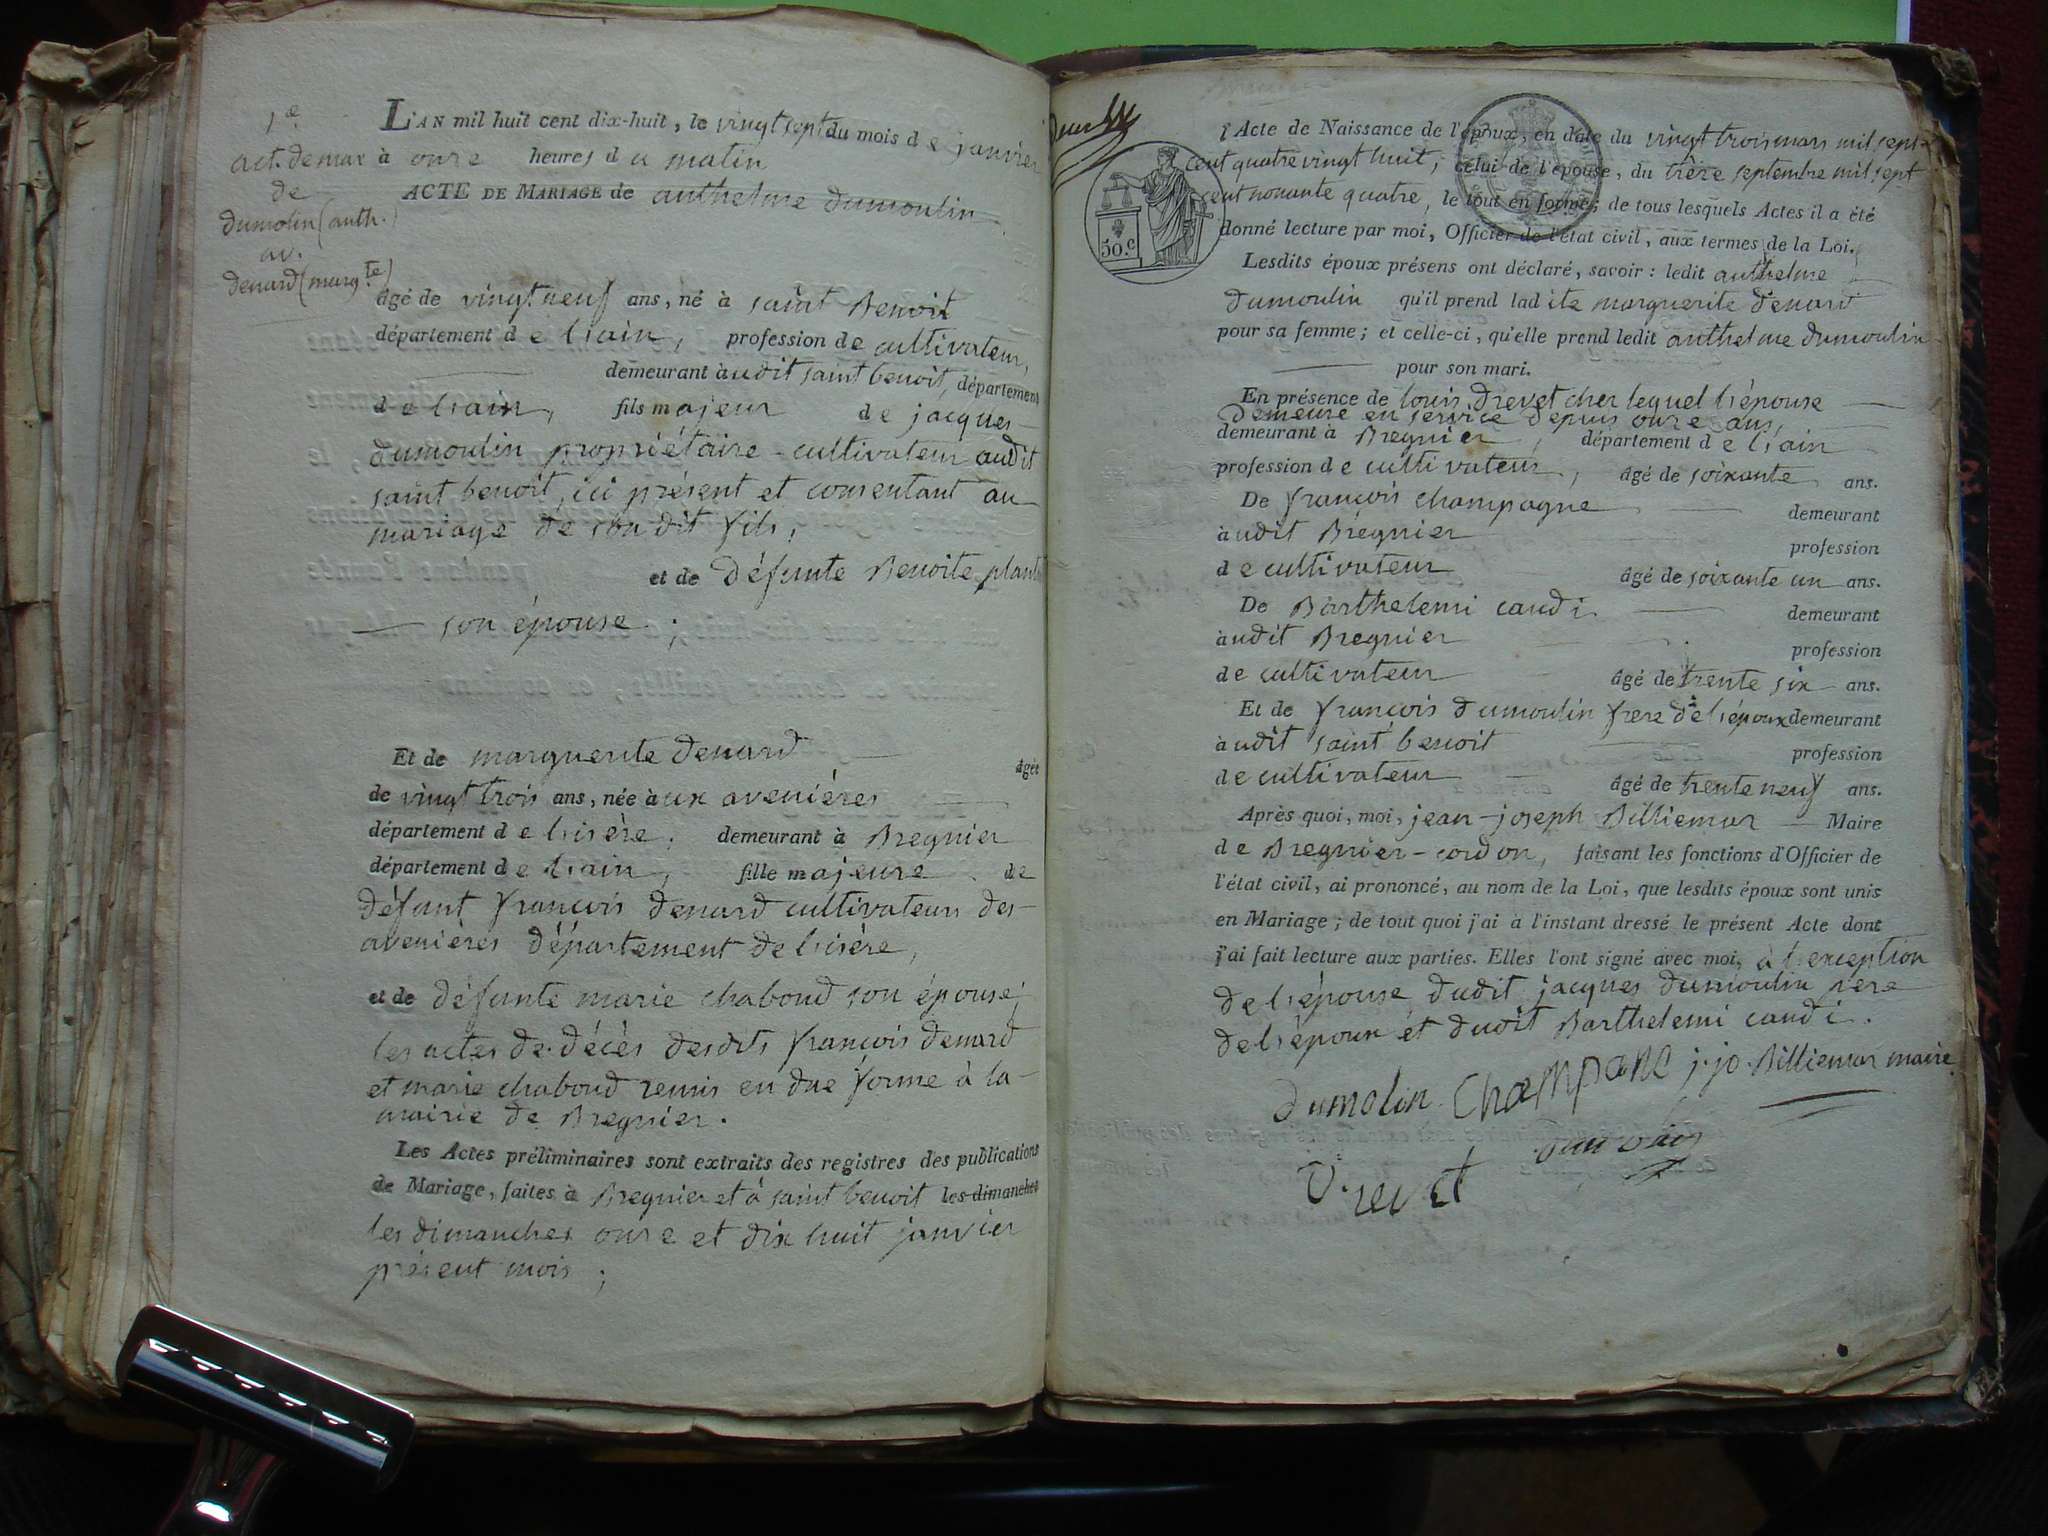 1e.
act. de mar
de
dumolin (anth.)
av.
denard (margte)
L'AN mil huit cent dix-huit, le vingt sept du mois de janvier
à onze heures du matin
ACTE DE MARIAGE de anthelme dumoulin
âgé de vingt neuf ans, né à saint Benoit
département de l'ain, profession de cultivateur,
demeurant audit saint benoit, département
de l'ain, fils majeur de jacques
dumoulin propriétaire-cultivateur audit
saint benoit, ici présent et consentant au
mariage de son dit fils,
et de défunte Benoite
son épouse ;
Et de marguerite denard âgée
de vingt trois ans, née aux avenières
département de l'isère. demeurant à Bregnier
département de l'ain, fille majeure de
défunt françois denard cultivateur des
avenières département de l'isère,
et de défunte marie chaboud son épouse;
les actes de décès desdits françois denard
et marie chaboud remis en due forme à la
mairie de Bregnier.
Les Actes préliminaires sont extraits des registres des publications
de Mariage, faites à Bregnier et à saint benoit les dimanches
les dimanches onze et dix huit janvier
présent mois ;
50 c
l'Acte de Naissance de l'époux, en date du vingt trois mars mil sept
cent quatre vingt huit; celui de l'épouse, du trèze septembre mil sept
cent nonante quatre, le tout en forme; de tous lesquels Actes il a été
donné lecture par moi, Officier de l'état civil, aux termes de la Loi.
Lesdits époux présens ont déclaré, savoir : ledit anthelme
dumoulin qu'il prend ladite marguerite denard
pour sa femme; et celle-ci, qu'elle prend ledit anthelme dumoulin
pour son mari.
En présence de louis drevet cher lequel l'épouse
demeure en service depuis onze ans,
demeurant à Bregnier, département de l'ain
profession de cultivateur, âgé de soixante ans.
De françois champagne demeurant
audit Bregnier profession
de cultivateur âgé de soixante un ans.
De Barthelemi caudi demeurant
audit Bregnier profession
de cultivateur âgé de trente six ans.
Et de françois dumoulin frere de l'époux demeurant
audit saint benoit profession
de cultivateur âgé de trente neuf ans.
Après quoi, moi, jean-joseph Billiemar Maire
de Bregnier-cordon, faisant les fonctions d'Officier de
l'état civil, ai prononcé, au nom de la Loi, que lesdits époux sont unis
en Mariage; de tout quoi j'ai à l'instant dressé le présent Acte dont
j'ai fait lecture aux parties. Elles l'ont signé avec moi, à l'exception
de l'épouse dudit jacques dumoulin pere
de l'époux et dudit Barthelemi caudi.
dumolin Champane j.jo. Billiemar maire
Drevet